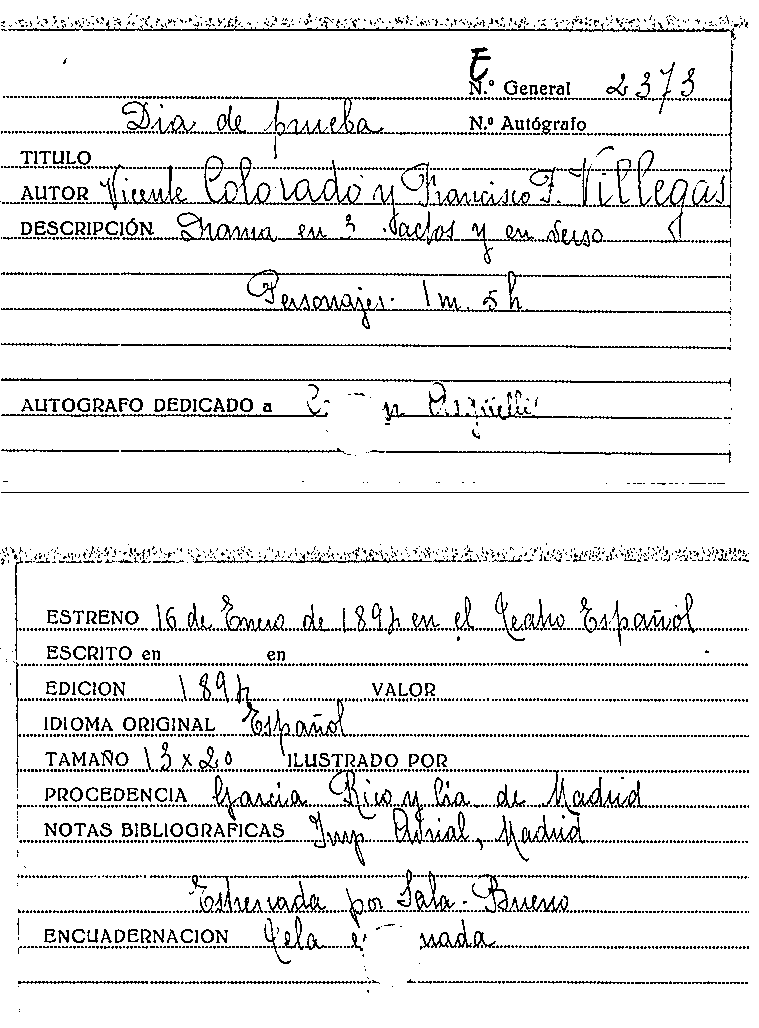 E
N.º General 2373
Dia de prueba N.º Autógrafo
TITULO
AUTOR Vicente Colorado y Francisco F. Villegas
DESCRIPCIÓN Drama en 3 actos y en verso
Personajes. 1 m. 5 h
AUTOGRAFO DEDICADO a
ESTRENO 16 de Enero de 1894 en el Teatro Español
ESCRITO en en
EDICION 1894 VALOR
IDIOMA ORIGINAL Español
TAMAÑO 13 x 20 ILUSTRADO POR
PROCEDENCIA Garcia Rico y Cia de Madrid
NOTAS BIBLIOGRAFICAS Imp Adrial, Madrid
Estrenada por Sala-Bueno
ENCUADERNACION Tela